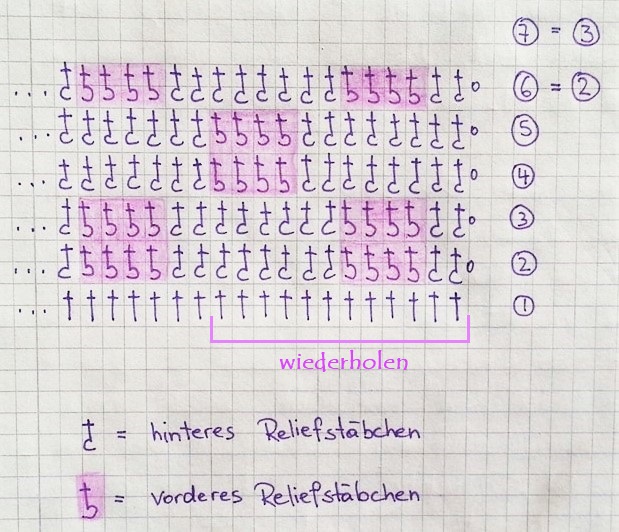 ⑦ = ③
... ⑥ = ②
... ⑤
... ④
... ③
... ②
... ①
wiederholen
= hinteres Reliefstäbchen
= vorderes Reliefstäbchen